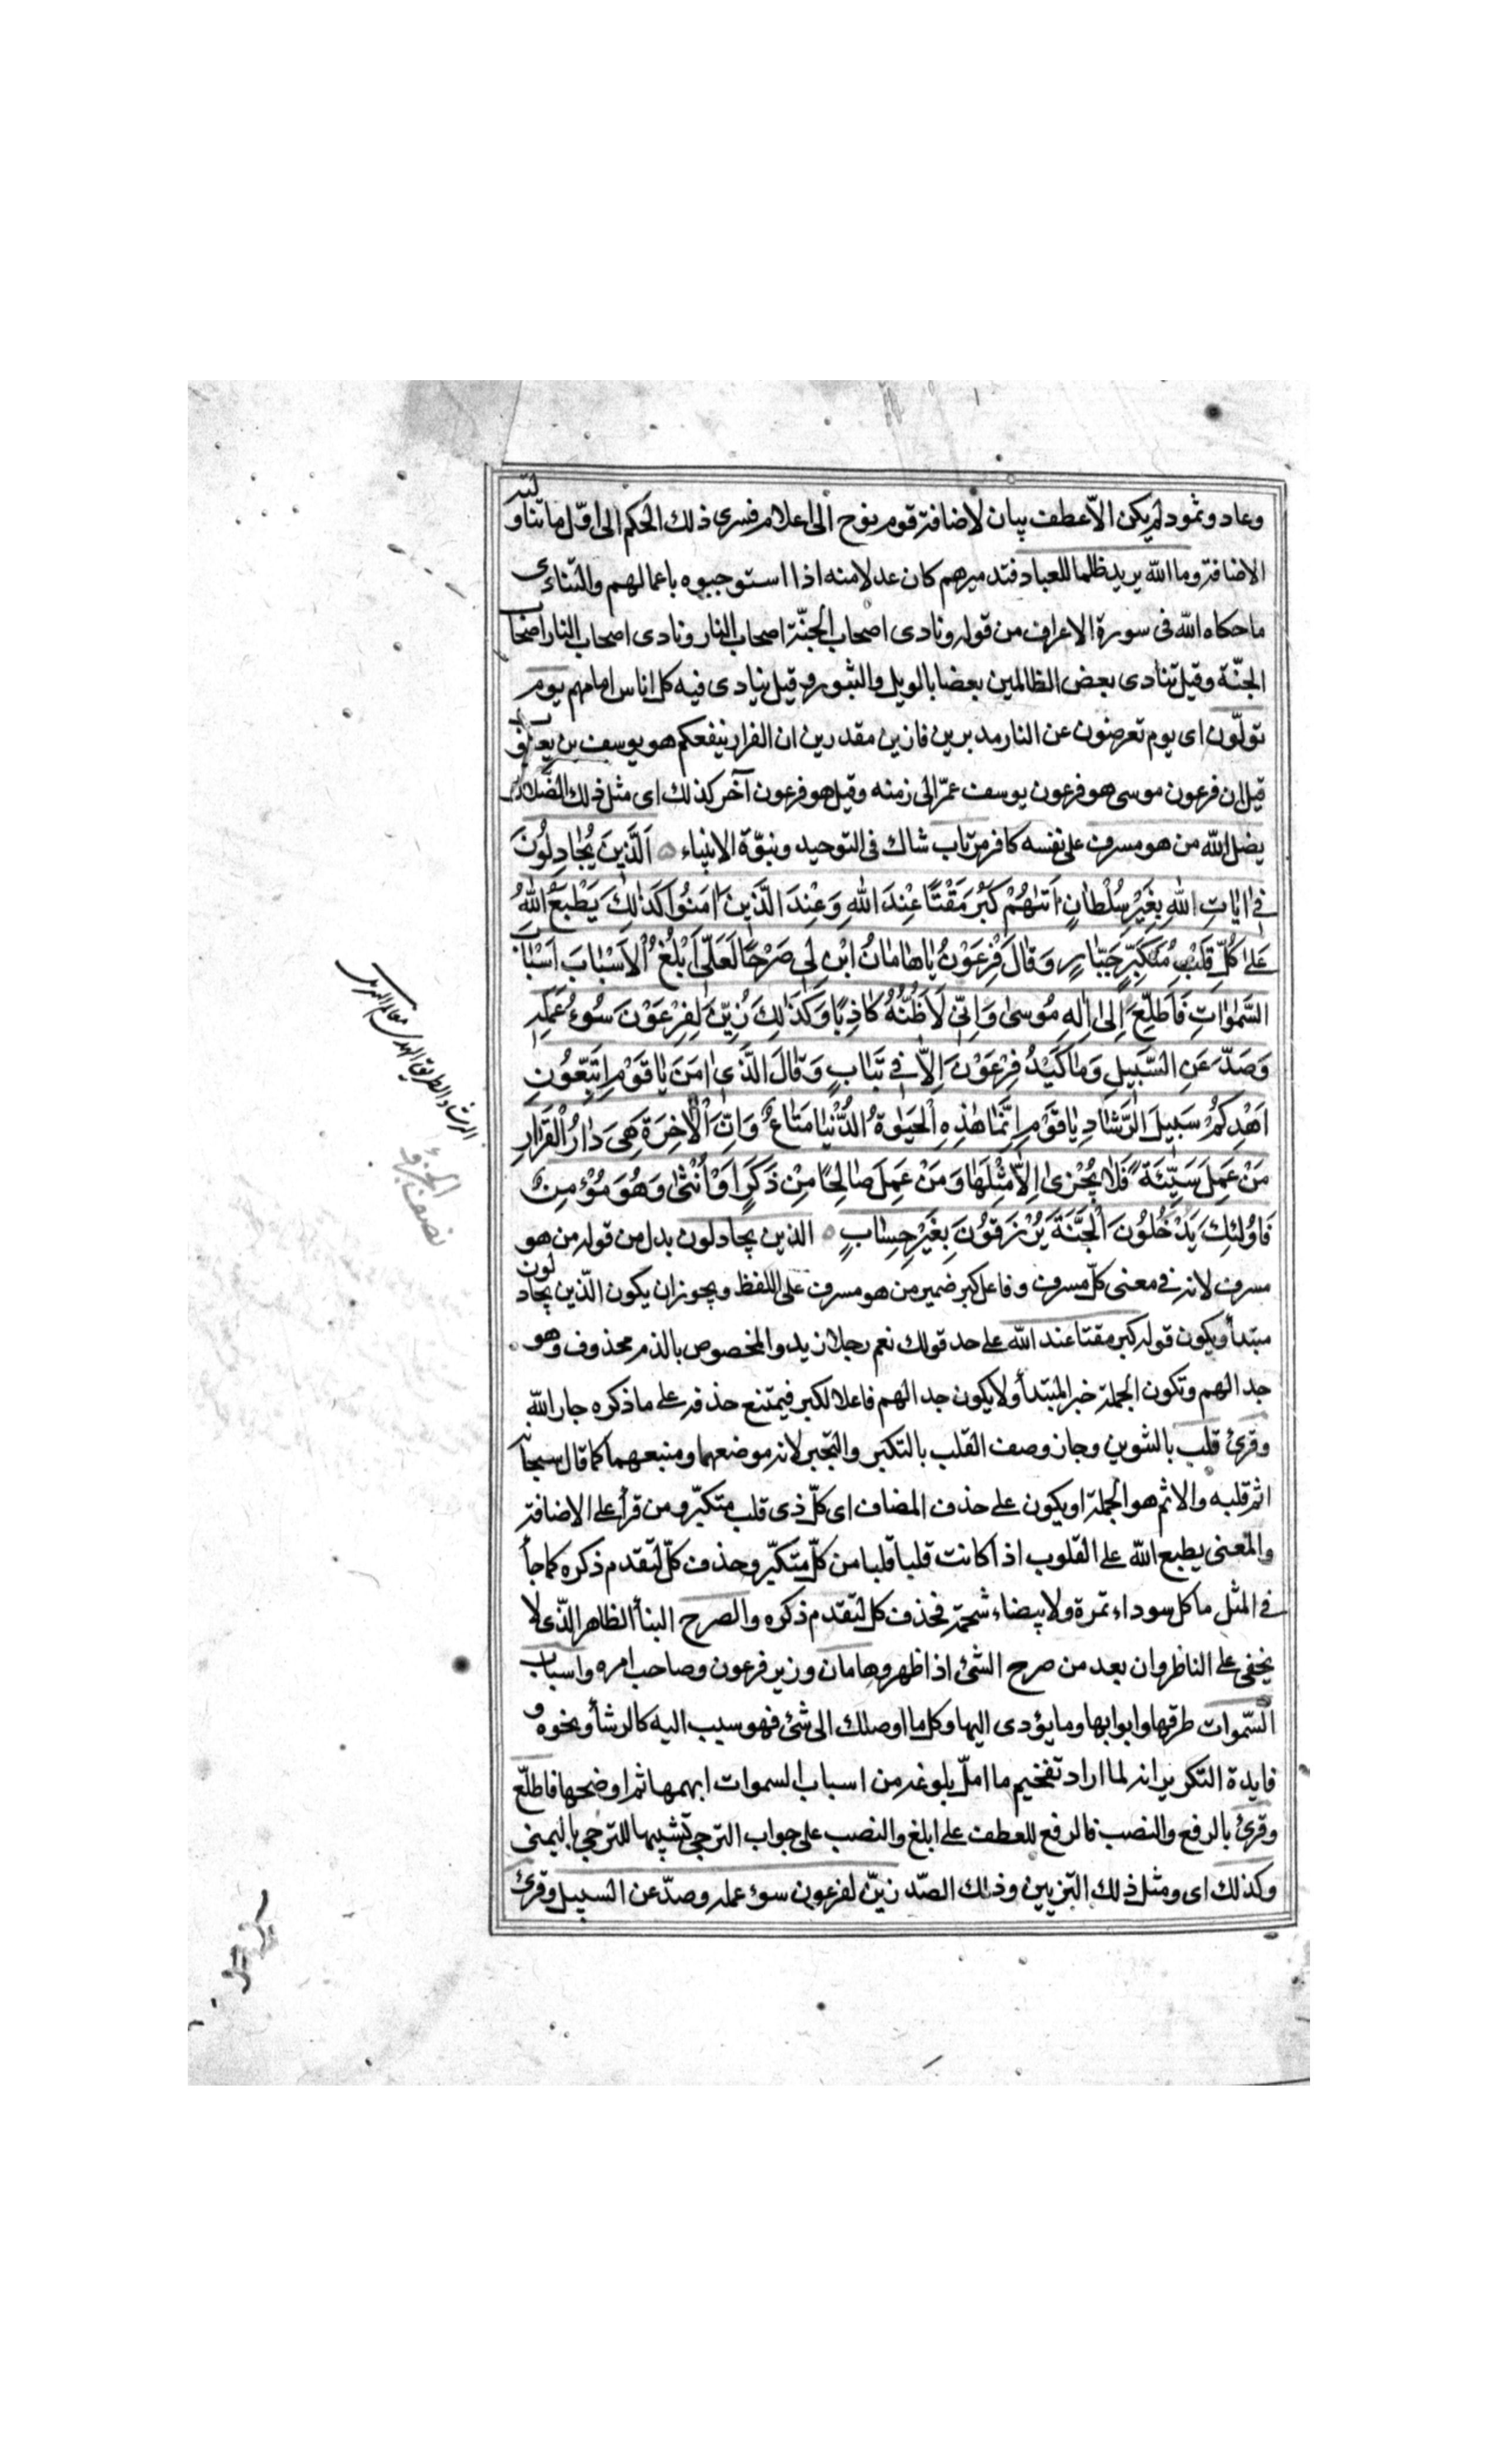 وعاد وثمود لم يكن الّا عطف بيان لاضافة قوم نوح الى اعلام فسرى ذلك الحكم الى اوّل ما تناولته
الاضافة وما الله يريد ظلما للعباد فتدميرهم كان عدلا منه اذا استوجبوه باعمالهم والتنادى
ما حكاه الله فى سورة الاعراف من قوله ونادى اصحاب الجنّة اصحاب النار ونادى اصحاب النار اصحاب
الجنّة وقيل تنادى بعض الظالمين بعضا بالويل والثبور وقيل ينادى فيه كل اناس امامهم يوم
تولّون اى يوم تعرضون عن النار مدبرين فارين مقدرين ان الفرار ينفعكم هو يوسف بن يعقوب
قيل ان فرعون موسى هو فرعون يوسف عمّر الى زمنه وقيل هو فرعون آخر كذلك اى مثل ذلك الضّلال
يضل الله من هو مسرف على نفسه كافر مرتاب شاك فى التوحيد ونبوّة الانبياء اَلَّذِينَ يُجَادِلُونَ
فِى اٰيَاتِ اللهِ بِغَيْرِ سُلْطَانٍ اَتٰىهُمْ كَبُرَ مَقْتًا عِنْدَ اللهِ وَعِنْدَ الَّذِينَ اٰمَنُوا كَذٰلِكَ يَطْبَعُ اللهُ
عَلٰى كُلِّ قَلْبِ مُتَكَبِّرٍ جَبَّارٍ وَقَالَ فِرْعَوْنُ يَا هَامَانُ ابْنِ لِى صَرْحًا لَعَلِّى اَبْلُغُ الْاَسْبَابَ اَسْبَابَ
السَّمٰوَاتِ فَاَطَّلِعَ اِلٰى اِلٰهِ مُوسٰى وَاِنِّى لَاَظُنُّهُ كَاذِبًا وَكَذٰلِكَ زُيِّنَ لِفِرْعَوْنَ سُوءُ عَمَلِهِ
وَصُدَّ عَنِ السَّبِيلِ وَمَا كَيْدُ فِرْعَوْنَ اِلَّا فِى تَبَابٍ وَقَالَ الَّذِى اٰمَنَ يَا قَوْمِ اتَّبِعُونِ
اَهْدِكُمْ سَبِيلَ الرَّشَادِ يَا قَوْمِ اِنَّمَا هٰذِهِ الْحَيٰوةُ الدُّنْيَا مَتَاعٌ وَاِنَّ الْاٰخِرَةَ هِىَ دَارُ الْقَرَارِ
مَنْ عَمِلَ سَيِّئَةً فَلَا يُجْزٰى اِلَّا مِثْلَهَا وَمَنْ عَمِلَ صَالِحًا مِنْ ذَكَرٍ اَوْ اُنْثٰى وَهُوَ مُؤْمِنٌ
فَاُولٰئِكَ يَدْخُلُونَ الْجَنَّةَ يُرْزَقُونَ بِغَيْرِ حِسَابٍ الذين يجادلون بدل من قوله من هو
مسرف لانه فى معنى كلّ مسرف وفاعل كبر ضمير من هو مسرف على اللفظ ويجوز ان يكون الّذين يجادلون
مبتدأ ويكون قوله كبر مقتا عند الله على حد قولك نعم رجلا زيد والمخصوص بالذم محذوف وهو
جدالهم وتكون الجملة خبر المبتدأ ولا يكون جدالهم فاعلا لكبر فيمتنع حذفه على ما ذكره جار الله
وقرئ قلب بالتنوين وجاز وصف القلب بالتكبر والتجبر لانه موضعهما ومنبعهما كما قال سبحانه
اثم قلبه والاثم هو الجملة او يكون على حذف المضاف اى كلّ ذى قلب متكبّر ومن قرأ على الاضافة
والمعنى يطبع الله على القلوب اذا كانت قلبا قلبا من كلّ متكبّر وحذف كلّ لتقدم ذكره كما جأ
فى المثل ما كل سوداء تمرة ولا بيضاء شحمة فحذف كل لتقدم ذكره والصرح البنأ الظاهر الذى لا
يخفى على الناظر وان بعد من صرح الشئ اذا ظهر وهامان وزير فرعون وصاحب امره واسباب
السّموات طرقها وابوابها وما يؤدى اليها وكل ما اوصلك الى شئ فهو سبب اليه كالرشأ ونحوه و
فايدة التكرير انه لما اراد تفخيم ما امّل بلوغه من اسباب السموات ابهمها ثم اوضحها فاطلع
وقرئ بالرفع والنصب فالرفع للعطف على ابلغ والنصب على جواب الترجى تشبيها للترجى بالتمنى
وكذلك اى ومثل ذلك التزيين وذلك الصّد زيّن لفرعون سوء عمله وصدّ عن السبيل وقرئ
الرشاد الطريق الهدى معالم التنزيل
نصف الجزؤ